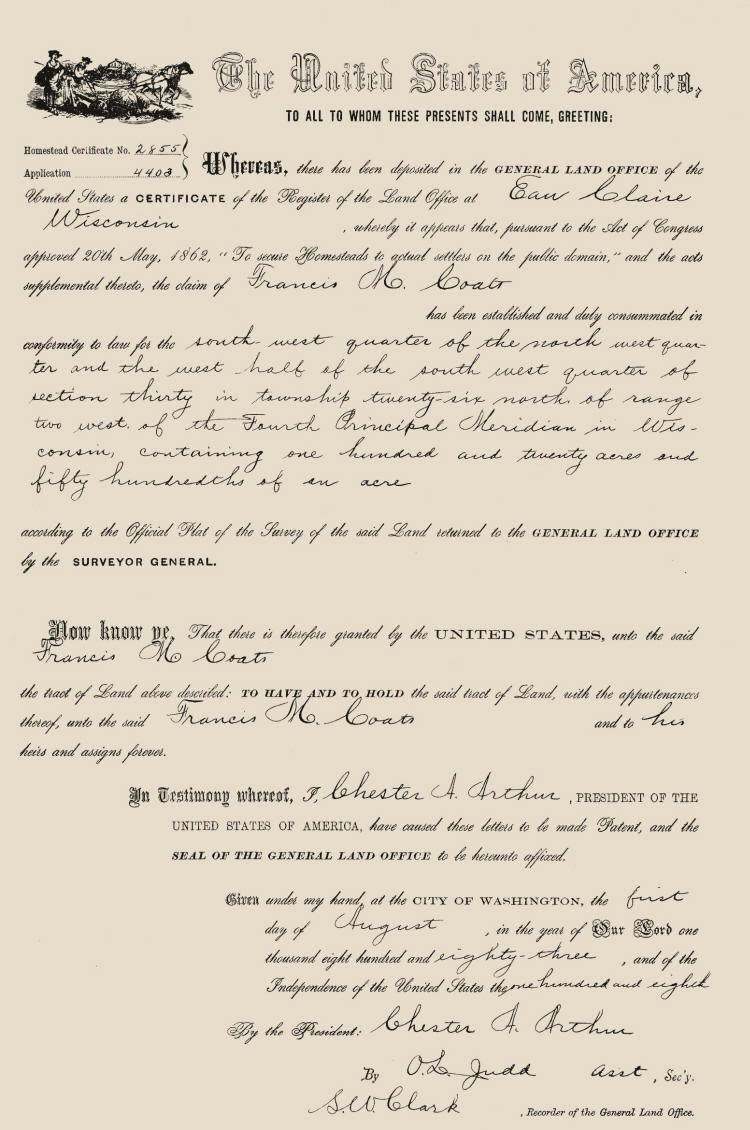 The United States of America,
TO ALL TO WHOM THESE PRESENTS SHALL COME, GREETING:
Homestead Certificate No. 2855
Application 4403
Whereas, there has been deposited in the GENERAL LAND OFFICE of the
United States a CERTIFICATE of the Register of the Land Office at Eau Claire
Wisconsin , whereby it appears that, pursuant to the Act of Congress
approved 20th May, 1862, "To secure Homesteads to actual settlers on the public domain," and the acts
supplemental thereto, the claim of Francis M. Coats
has been established and duly consummated in
conformity to law for the south west quarter of the north west quar-
ter and the west half of the south west quarter of
section thirty in township twenty-six north of range
two west of the Fourth Principal Meridian in Wis-
consin, containing one hundred and twenty acres and
fifty hundredths of an acre
according to the Official Plat of the Survey of the said Land returned to the GENERAL LAND OFFICE
by the SURVEYOR GENERAL.
Now know ye, That there is therefore granted by the UNITED STATES, unto the said
Francis M Coats
the tract of Land above described: TO HAVE AND TO HOLD the said tract of Land, with the appurtenances
thereof, unto the said Francis M. Coats and to his
heirs and assigns forever.
In Testimony whereof, I, Chester A. Arthur , PRESIDENT OF THE
UNITED STATES OF AMERICA, have caused these letters to be made Patent, and the
SEAL OF THE GENERAL LAND OFFICE to be hereunto affixed.
Given under my hand, at the CITY OF WASHINGTON, the first
day of August , in the year of Our Lord one
thousand eight hundred and eighty-three , and of the
Independence of the United States the one hundred and eighth
By the President: Chester A. Arthur
By O.L. Judd asst , Sec'y.
S.W. Clark , Recorder of the General Land Office.